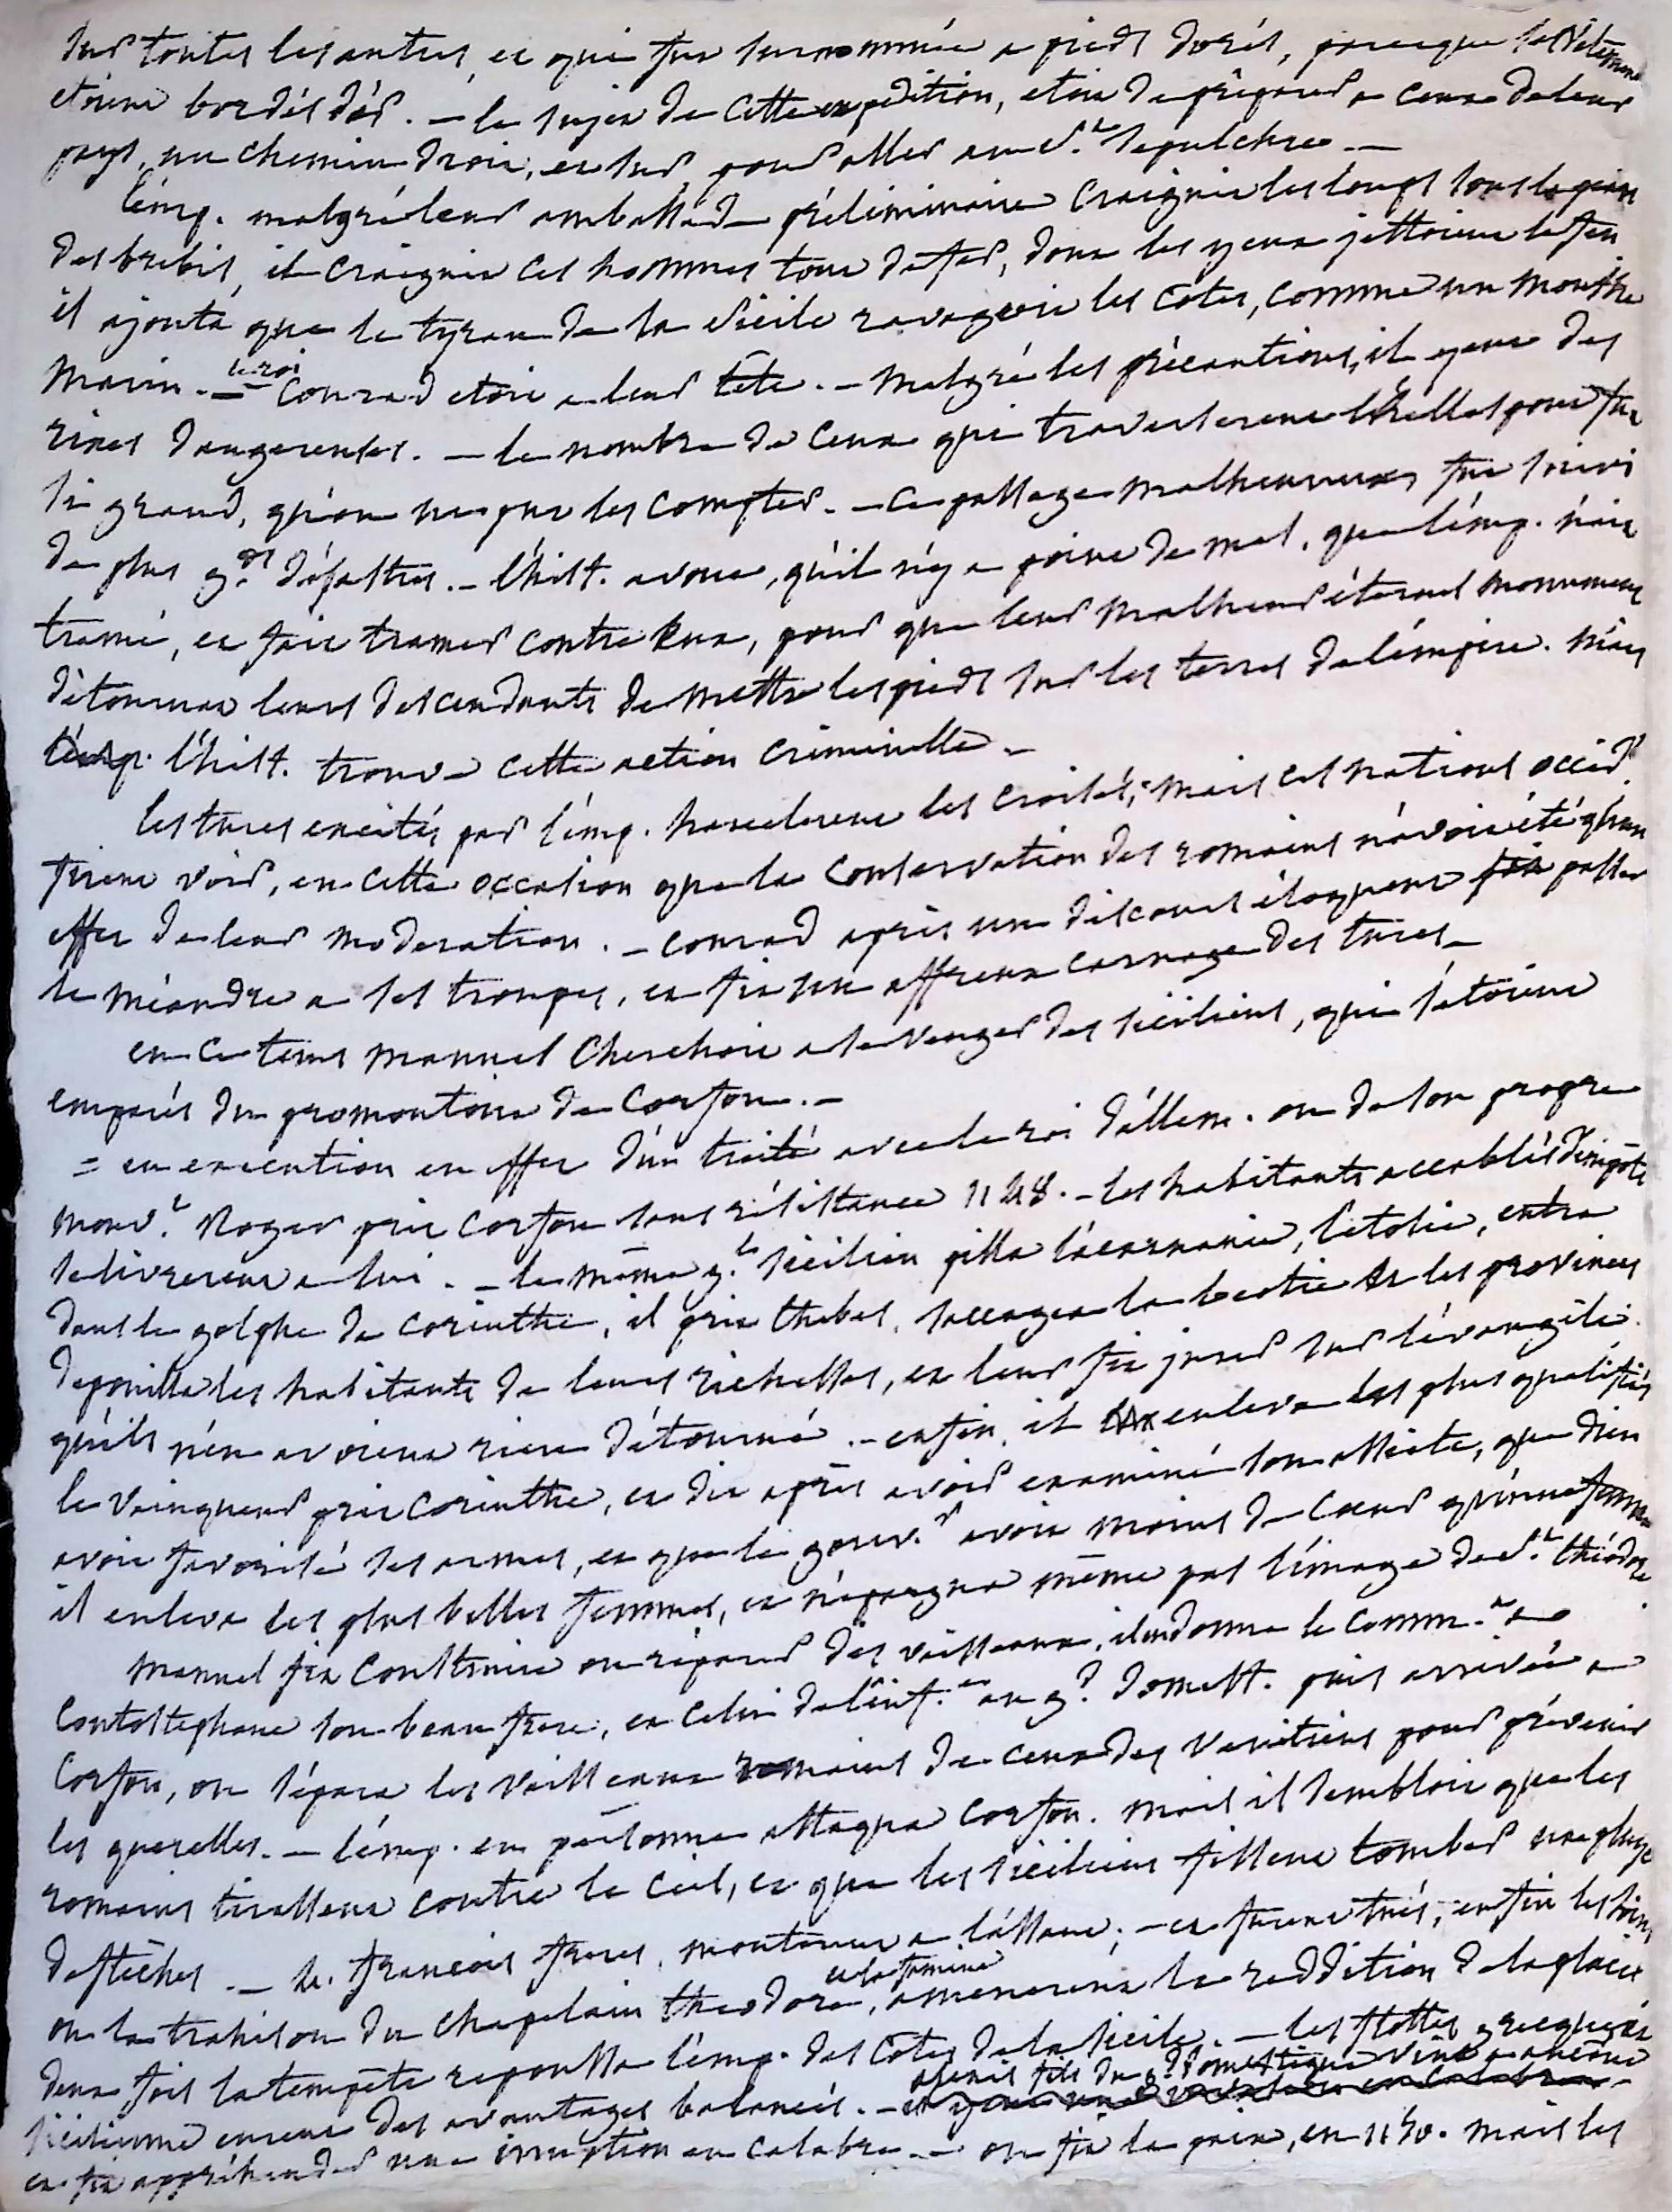 sur toutes les autres, et qui fut surnommée a pieds dorés, parceque ses vêtemens
étoient bordés d'or. — le sujet de cette expédition, étoit de préparer a ceux de leur
pays, un chemin droit, et sur pour aller au St. sepulchre. —
l'emp. malgré leur ambassade préliminaire craignit les loups sous la peau
des brebis, il craignit ces hommes tout de fer, dont les yeux jettoient le feu
il ajouta que le tyran de la Sicile ravageoit les côtes, comme un monstre
marin. — le roi Conrad etoit a leur tête. — malgré les précautions, il y eut des
rixes dangereuses. — le nombre de ceux qui traverserent l'hellespont fut
si grand, qu'on ne put les compter. — ce passage malheureux fut suivi
de plus gds. désastres. — l'hist. avoue, qu'il n'y a point de mal, que l'emp. n'ait
tramé, et fait tramer contre eux, pour que leur malheur éternel monument
détournat leurs descendants de mettre les pieds sur les terres de l'empire. mais
l'emp. l'hist. trouve cette action criminelle. —
les turcs excités par l'emp. harcelerent les croisés; mais ces nations occid.
firent voir, en cette occasion que la conservation des romains n'avoit été qu'un
effet de leur moderation. — conrad après un discours éloquent fit passer
le méandre a ses troupes, et fit un affreux carnage des turcs. —
en ce tems manuel cherchoit a se venger des siciliens, qui s'étoient
emparés du promontoire de Corfou. —
= en execution en effet d'un traité avec le roi d'allem. ou de son propre
mouvt. Roger prit corfou sans résistance 1148. — les habitants accablés d'impôts
se livrerent a lui. — le même gal. sicilien pilla l'acarnanie, l'etolie, entra
dans le golphe de corinthe, il prit thebes, saccagea la beotie & les provinces
depouilla les habitants de leurs richesses, et leur fit jurer sur l'évangile.
qu'ils n'en avoient rien détourné. — enfin, il enleva les plus qualifiés
le vainqueur prit corinthe, et dit après avoir examiné son assiete, que dieu
avoit favorisé ses armes, et que le gouvr. avoit moins de coeur qu'une femme
il enleva les plus belles femmes, et n'épargna même pas l'image de St. théodore
manuel fit construire ou réparer des vaisseaux, il en donna le commt. a
Contostephane son beau frere, et celui de l'inf.ie au gd. domest. puis arrivée a
Corfou, on sépara les vaisseaux romains de ceux des venitiens pour prévenir
les querelles. — l'emp. en personne attaqua corfou. mais il sembloit que les
romains tirassent contre le ciel, et que les siciliens fissent tomber une pluye
de flêches. — 4. francois freres, monterent a l'assaut; — et furent tués; enfin les soins
ou la trahison du chapelain theodore, et la famine amenerent la reddition de la place
deux fois la tempête repoussa l'emp. des côtes de la sicile. — les flottes grecque et
sicilienne eurent des avantages balancés. — alexis fils du gd. domestique vint a ancône
et fit appréhender une irruption en calabre. — on fit la paix, en 1150. mais les